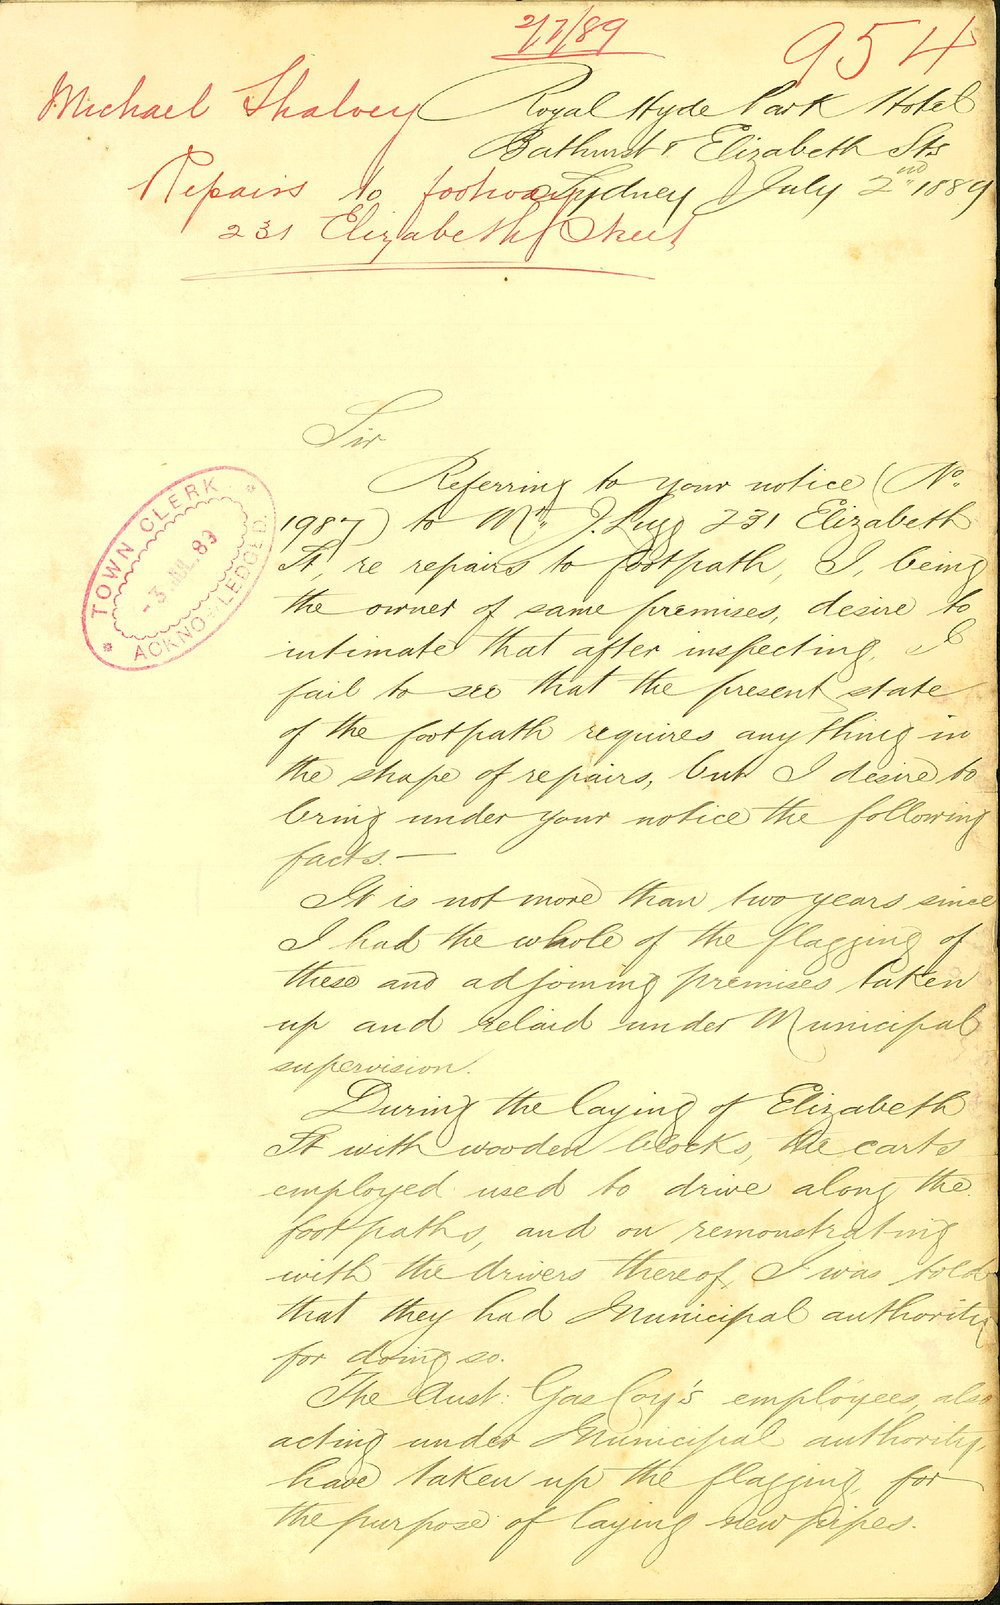 2/7/89
954
Michael Shalvey
Royal Hyde Park Hotel
Bathurst & Elizabeth Sts
Repairs to footway
Sydney July 2nd 1889
231 Elizabeth Street
Sir
Referring to your notice (No.
1987) to Mr. J. Lugg 231 Elizabeth
St, re repairs to footpath, I, being
the owner of same premises, desire to
intimate that after inspecting, I
fail to see that the present state
of the footpath requires anything in
the shape of repairs, but I desire to
bring under your notice the following
facts. —
It is not more than two years since
I had the whole of the flagging of
these and adjoining premises taken
up and relaid under Municipal
supervision.
During the laying of Elizabeth
St with wooden blocks, the carts
employed used to drive along the
footpaths, and on remonstrating
with the drivers thereof, I was told
that they had Municipal authority
for doing so.
The Aust: Gas Coy's employees, also
acting under Municipal authority,
have taken up the flagging, for
the purpose of laying new pipes.
TOWN CLERK
-3 JUL. 89
ACKNOWLEDGED.